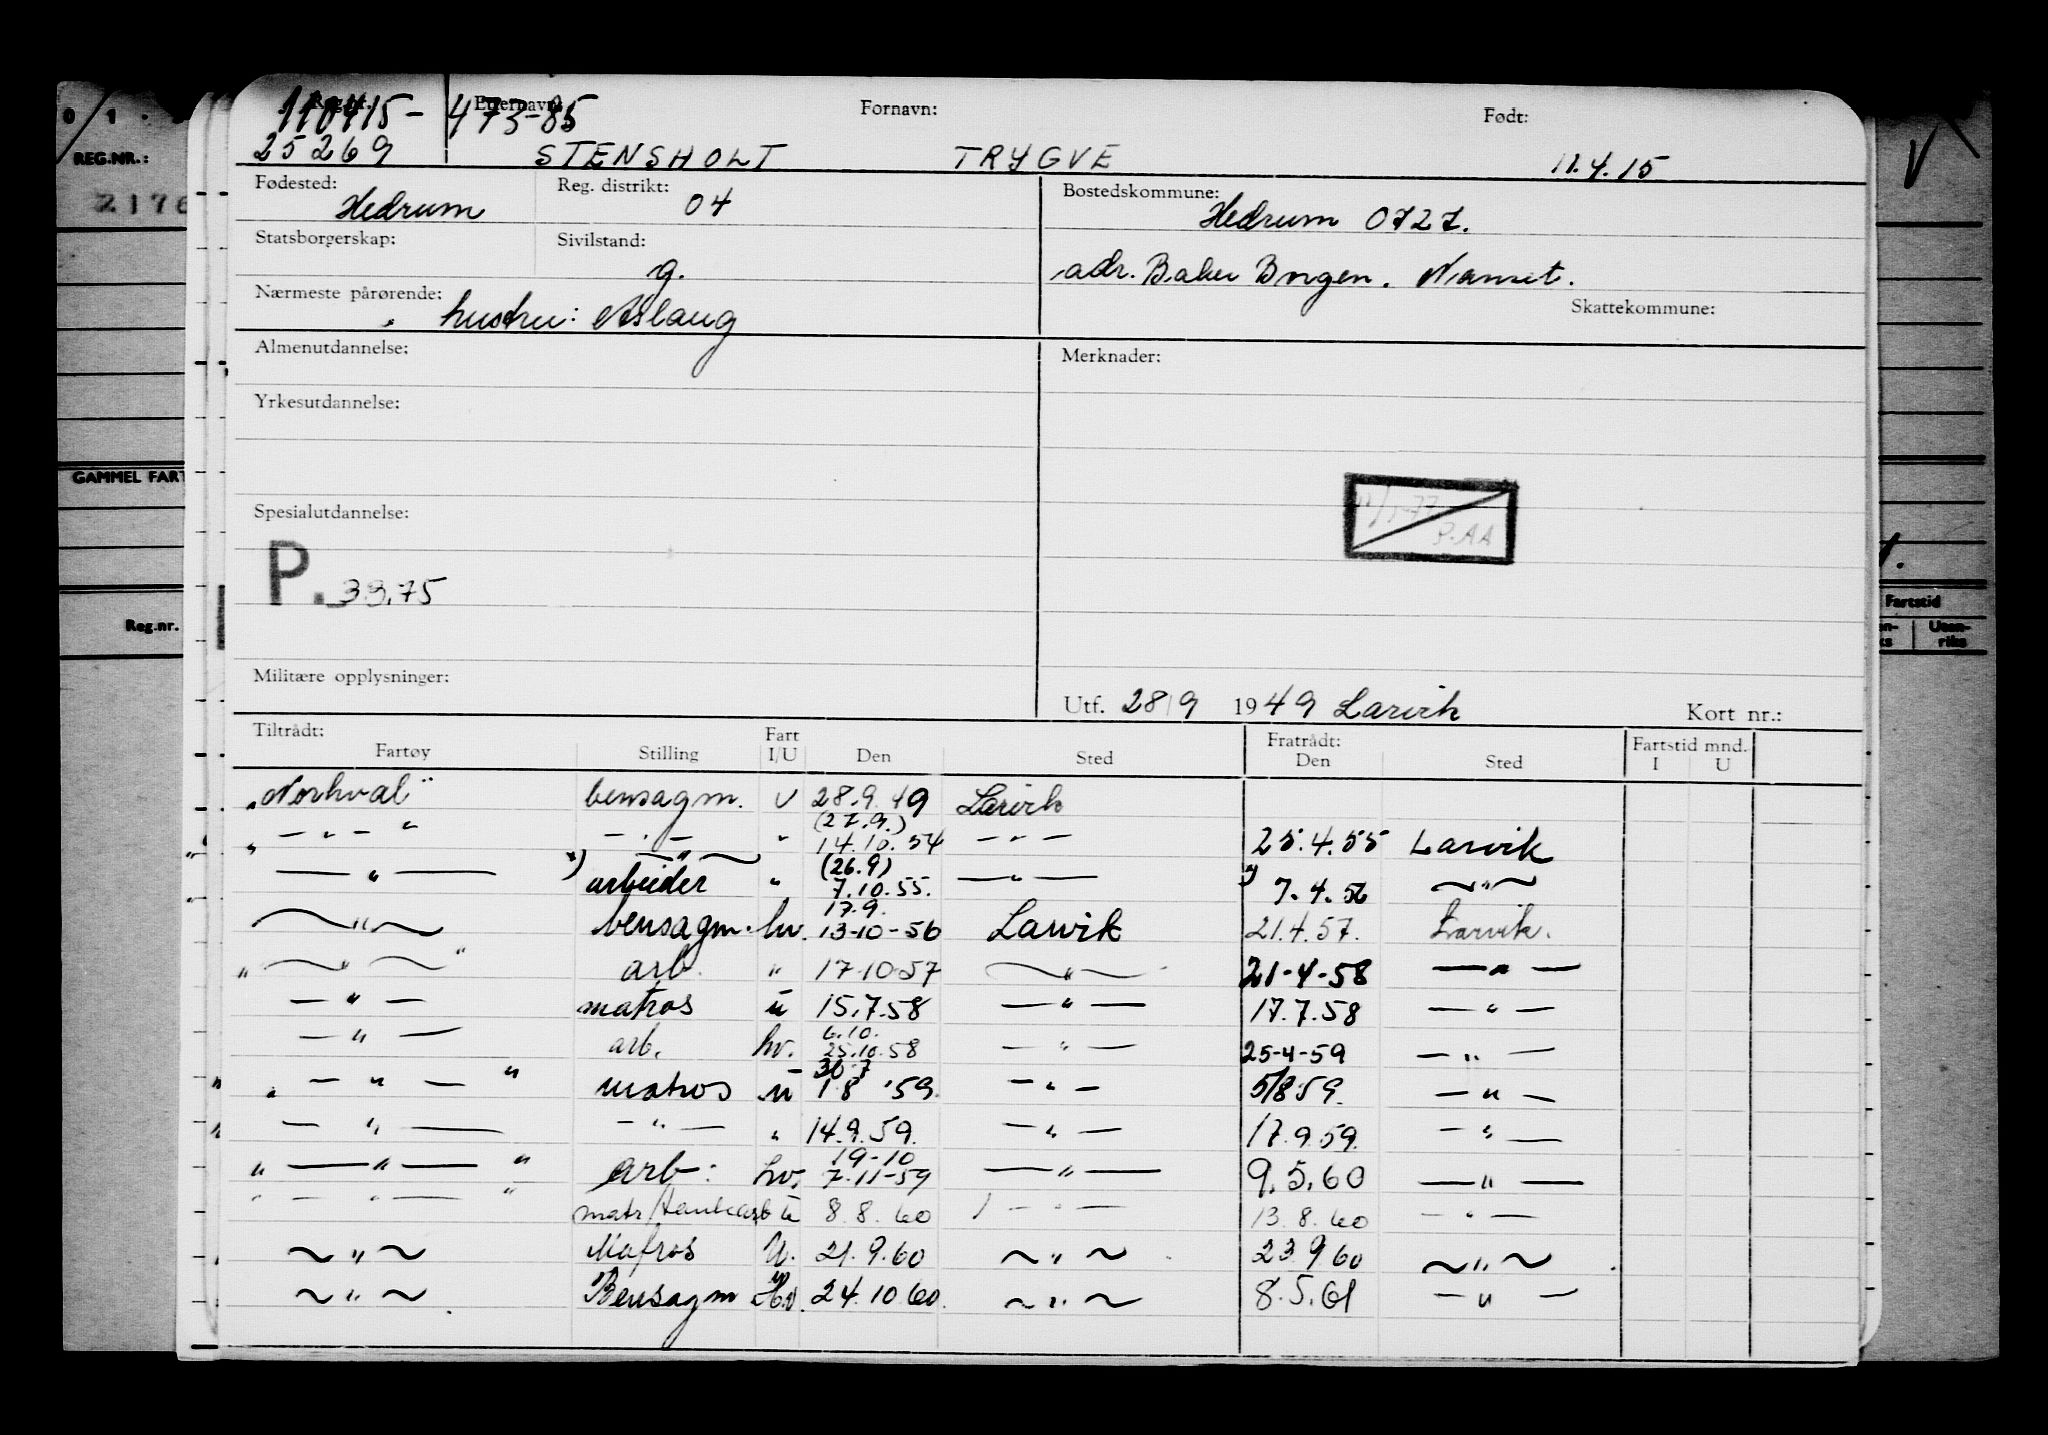 110415- 473-85
Reg.nr. Etternavn: Fornavn: Født:
25269 STENSHOLT TRYGVE 11.4.15
REG.NR.:
2176
Fødested: Hedrum Reg. distrikt: 04 Bostedskommune: Hedrum 0727.
Statsborgerskap: Sivilstand: g. adr. Nanset.
Nærmeste pårørende: hustru: Aslaug Skattekommune:
Almenutdannelse: Merknader:
Yrkesutdannelse:
GAMMEL FART
Spesialutdannelse:
P.AA
P. 33.75
Reg.nr. Fartstid
Uten-
riks
Militære opplysninger:
Utf. 28/9 1949 Larvik Kort nr.:
Tiltrådt: Fart Fratrådt: Fartstid mnd.
Fartøy Stilling I/U Den Sted Den Sted I U
"Norhval" bensagm. U 28.9.49 Larvik
(27.9.)
" — " — " — " — " 14.10.54 — " — 25.4.55 Larvik
~ " ~ (26.9)
— " — x) arbeider " 7.10.55. — " — x) 7.4.56 ~ " ~
17.9.
~ " ~ bensagm. hv. 13-10-56 Larvik 21.4.57. Larvik.
" ~ " ~ " arb. " 17-10-57 ~ " ~ 21-4-58 — " —
— " — matros u 15.7.58 — " — 17.7.58 — " —
6.10.
— " — arb. hv. 25.10.58 — " — 25-4-59 — " —
30.7
" — " — " matros u 1.8 '59. — " — 5/8.59. — " —
— " — — " — " 14.9.59. — " — 17.9.59. — " —
19-10
" — " — " arb: hv. 7.11-59 — " — 9.5.60 — " —
" — " — " u 8.8.60 — " — 13.8.60 — " —
~ " ~ Matros U. 21.9.60 ~ " ~ 23.9.60 ~ " ~
~ " ~ Bensagm Hv. 24.10.60. ~ " ~ 8.5.61 — " —